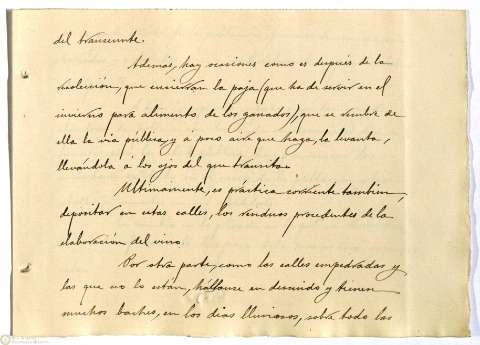 del transeunte.
Además, hay ocasiones como es después de la
recolección, que encierran la paja (que ha de servir en el
invierno para alimento de los ganados), que se siembre de
ella la via pública, y á poco aire que haga, la levanta,
llevándola á los ojos del que transita.
Ultimamente, es práctica corriente tambien,
depositar en estas calles, los residuos procedentes de la
elaboración del vino.
Por otra parte, como las calles empedradas y
las que no lo están, hállanse en descuido y tienen
muchos baches, en los dias lluviosos, sobre todo las